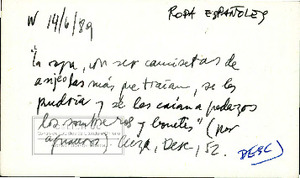 ROPA ESPAÑOLES
N 14/6/89
"la ropa, con ser camisetas de
anjeo las más que traían, se les
pudría y se les caían a pedazos
los sombreros y bonetes" (por
aguaceros) Cieza, Desc, 52.
DESC)